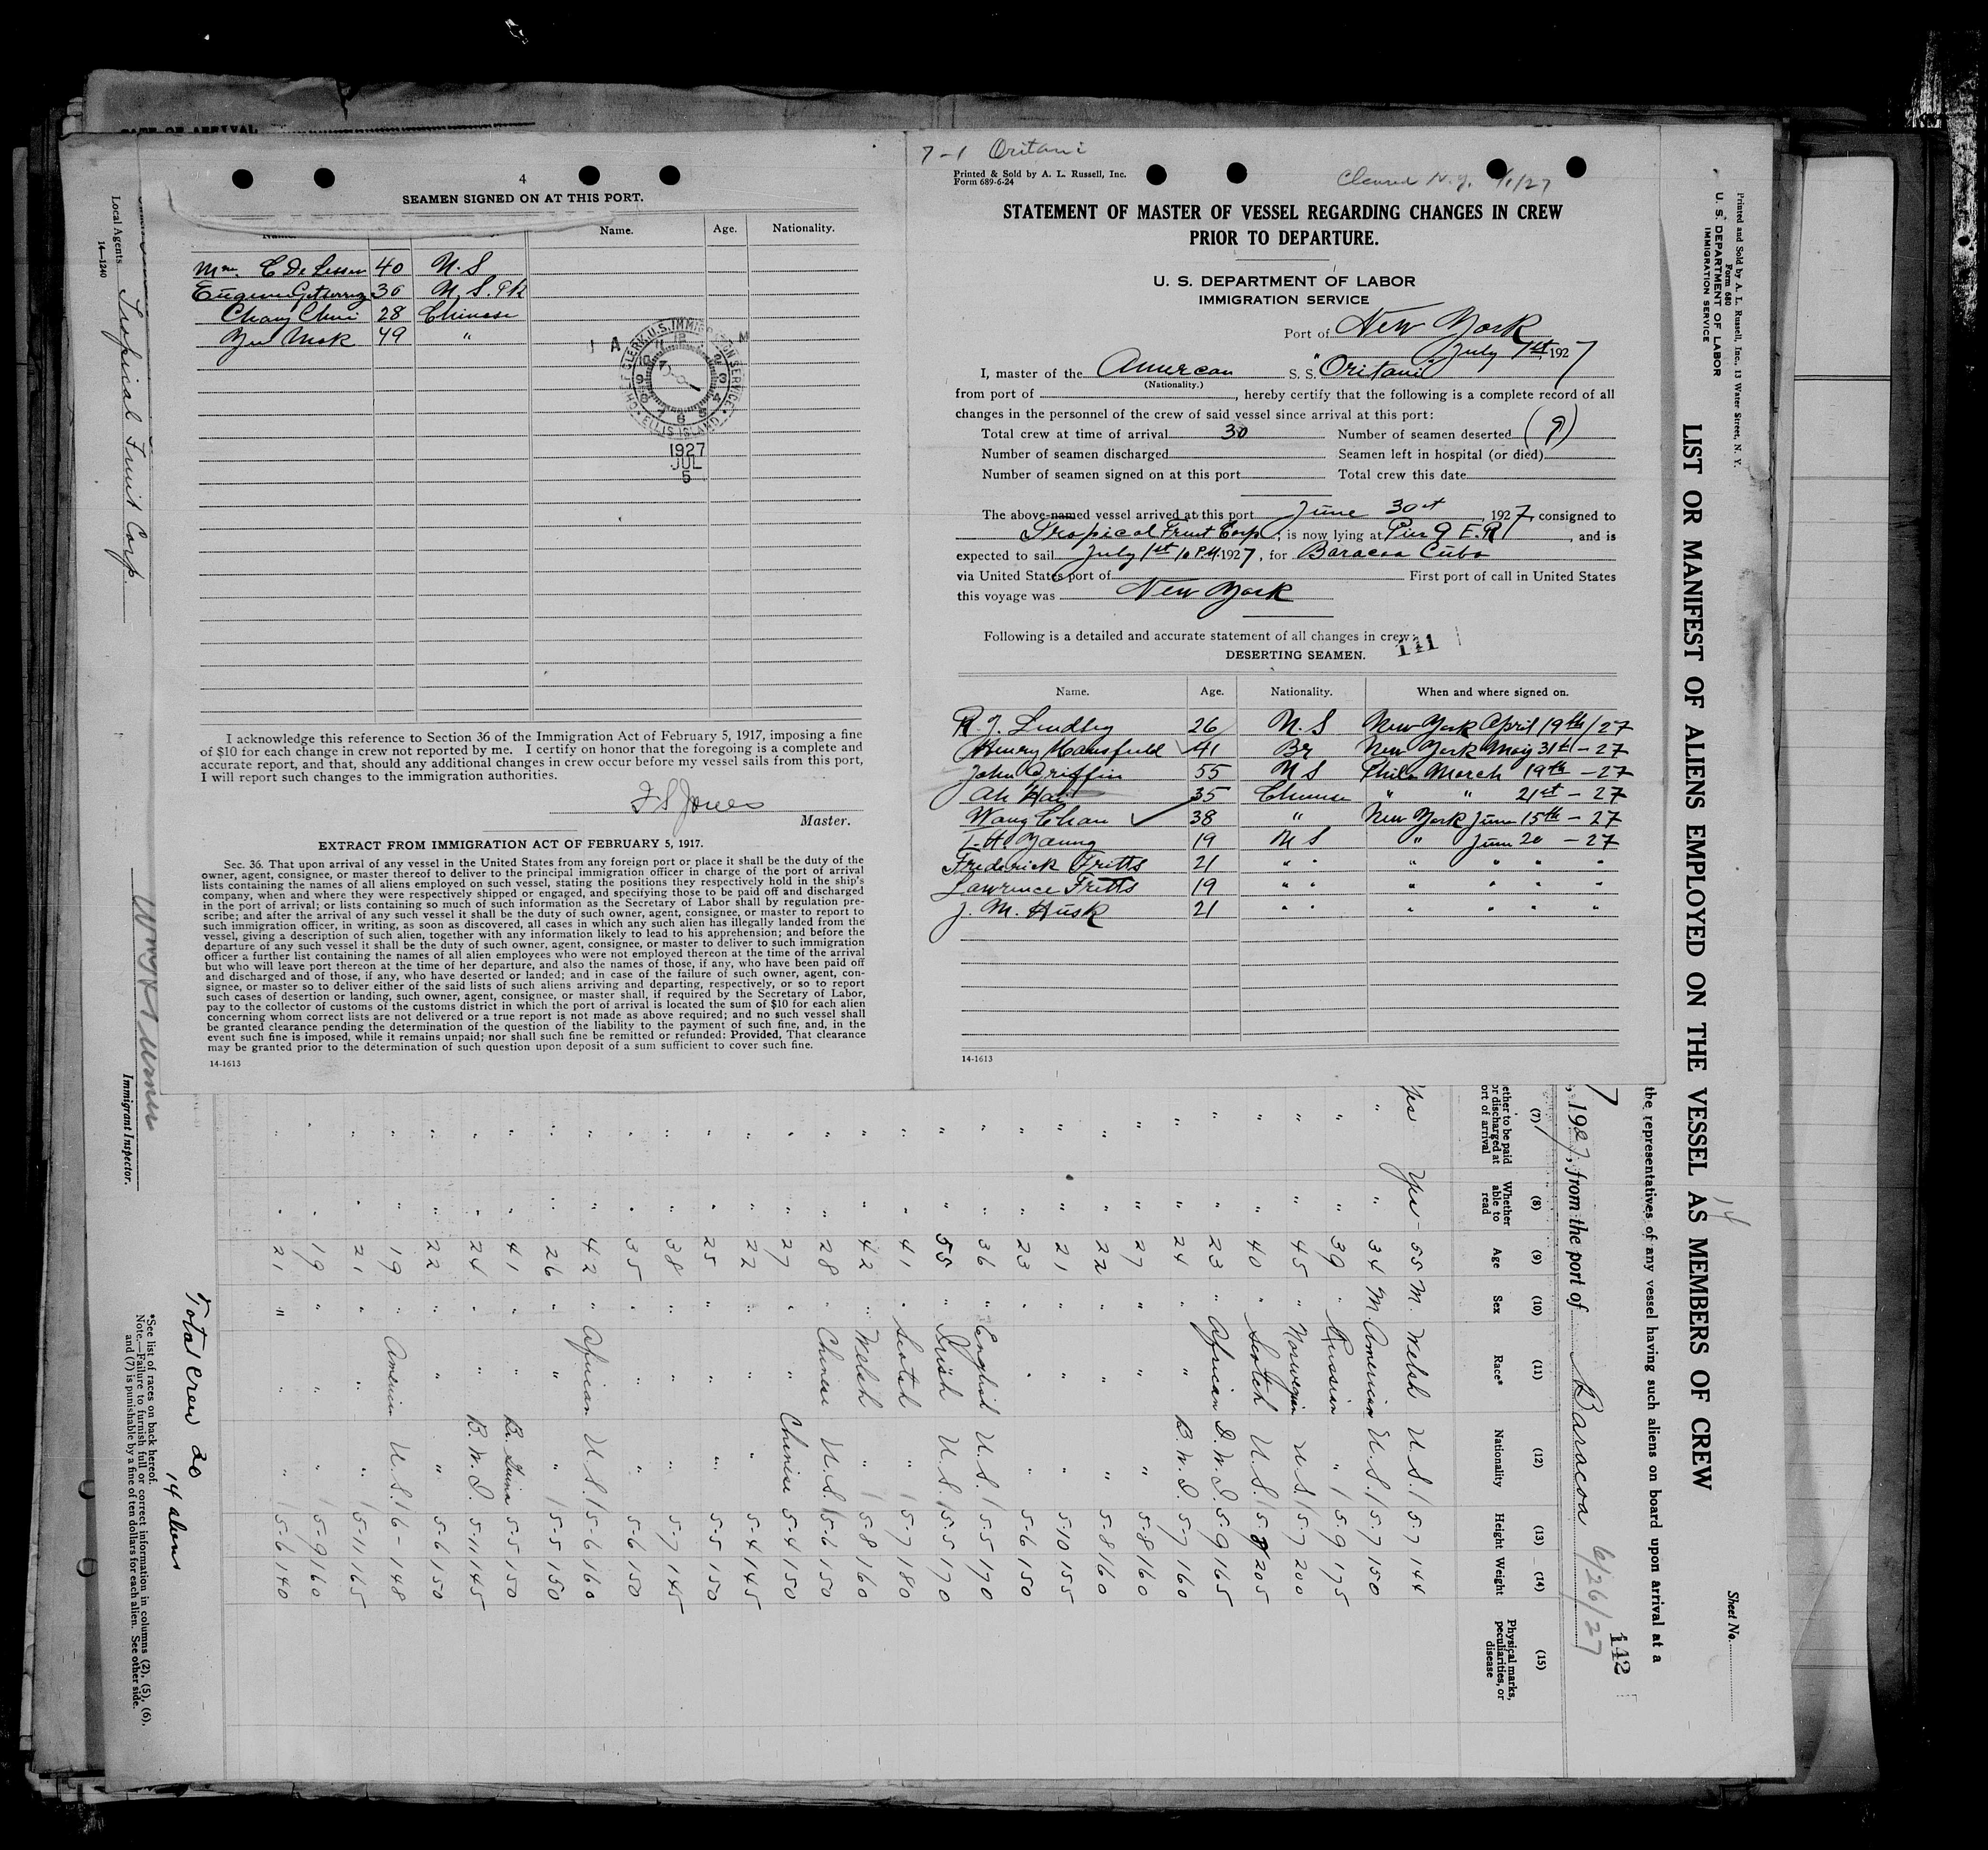 4
SEAMEN SIGNED ON AT THIS PORT.
Name. Age. Nationality.
40 N.S
36
Chang Chui 28 Chinese
Yee Mok 49 "
CHIEF CLERK, U.S. IMMIGRATION SERVICE
ELLIS ISLAND
1927
JUL
5
I acknowledge this reference to Section 36 of the Immigration Act of February 5, 1917, imposing a fine
of $10 for each change in crew not reported by me. I certify on honor that the foregoing is a complete and
accurate report, and that, should any additional changes in crew occur before my vessel sails from this port,
I will report such changes to the immigration authorities.
Jones
Master.
EXTRACT FROM IMMIGRATION ACT OF FEBRUARY 5, 1917.
Sec. 36. That upon arrival of any vessel in the United States from any foreign port or place it shall be the duty of the
owner, agent, consignee, or master thereof to deliver to the principal immigration officer in charge of the port of arrival
lists containing the names of all aliens employed on such vessel, stating the positions they respectively hold in the ship's
company, when and where they were respectively shipped or engaged, and specifying those to be paid off and discharged
in the port of arrival; or lists containing so much of such information as the Secretary of Labor shall by regulation pre-
scribe; and after the arrival of any such vessel it shall be the duty of such owner, agent, consignee, or master to report to
such immigration officer, in writing, as soon as discovered, all cases in which any such alien has illegally landed from the
vessel, giving a description of such alien, together with any information likely to lead to his apprehension; and before the
departure of any such vessel it shall be the duty of such owner, agent, consignee, or master to deliver to such immigration
officer a further list containing the names of all alien employees who were not employed thereon at the time of the arrival
but who will leave port thereon at the time of her departure, and also the names of those, if any, who have been paid off
and discharged and of those, if any, who have deserted or landed; and in case of the failure of such owner, agent, con-
signee, or master so to deliver either of the said lists of such aliens arriving and departing, respectively, or so to report
such cases of desertion or landing, such owner, agent, consignee, or master shall, if required by the Secretary of Labor,
pay to the collector of customs of the customs district in which the port of arrival is located the sum of $10 for each alien
concerning whom correct lists are not delivered or a true report is not made as above required; and no such vessel shall
be granted clearance pending the determination of the question of the liability to the payment of such fine, and, in the
event such fine is imposed, while it remains unpaid; nor shall such fine be remitted or refunded: Provided, That clearance
may be granted prior to the determination of such question upon deposit of a sum sufficient to cover such fine.
14-1613
7-1 Oritani
Printed & Sold by A. L. Russell, Inc.
Form 689-6-24
Cleared N.Y. 7/1/27
STATEMENT OF MASTER OF VESSEL REGARDING CHANGES IN CREW
PRIOR TO DEPARTURE.
U. S. DEPARTMENT OF LABOR
IMMIGRATION SERVICE
Port of New York
July 1st 1927
I, master of the American S. S. "Oritani"
(Nationality.)
from port of , hereby certify that the following is a complete record of all
changes in the personnel of the crew of said vessel since arrival at this port:
Total crew at time of arrival 30 Number of seamen deserted (9)
Number of seamen discharged Seamen left in hospital (or died)
Number of seamen signed on at this port Total crew this date
The above-named vessel arrived at this port June 30st 1927, consigned to
Tropical Fruit Corp, is now lying at Pier 9 E.R, and is
expected to sail July 1st 10 P.M. 1927, for Baracoa Cuba
via United States port of First port of call in United States
this voyage was New York
Following is a detailed and accurate statement of all changes in crew:
141
DESERTING SEAMEN.
Name. Age. Nationality. When and where signed on.
R J. Lindley 26 N.S New York April 19th/27
Henry Mansfield 41 Br New York May 31st - 27
John Griffin 55 N S Phila March 19th - 27
Ah Hai 35 Chinese " " 21st - 27
Wang Chan 38 " New York June 15th - 27
L H Young 19 N S " June 20 - 27
Frederick Fritts 21 " " " " " "
Lawrence Fritts 19 " " " " " "
J. M. Husk 21 " " " " " "
14-1613
Printed and Sold by A. L. Russell, Inc., 13 Water Street, N. Y.
Form 680
U. S. DEPARTMENT OF LABOR
IMMIGRATION SERVICE
LIST OR MANIFEST OF ALIENS EMPLOYED ON THE VESSEL AS MEMBERS OF CREW
14
Sheet No.
the representatives of any vessel having such aliens on board upon arrival at a
142
7, 1927, from the port of Baracoa 6/26/27
(7) (8) (9) (10) (11) (12) (13) (14) (15)
ether to be paid
or discharged at
ort of arrival
Whether
able to
read
Age Sex Race* Nationality Height Weight
Physical marks,
peculiarities, or
disease
Yes Yes 55 M. Welsh U.S. 5-7 144
" " 34 M American U.S. 5-7 150
" " 39 " Russian " 5-9 175
" " 45 " Norwegian U.S. 5-7 200
" " 40 " Scotch U.S. 5-8 205
" " 23 " African D.W.I. 5-9 165
" " 24 " " B.W.I. 5-7 160
" " 27 " " " 5-8 160
" " 22 " " " 5-8 160
" " 21 " " " 5-10 155
" " 23 " " " 5-6 150
" " 36 " English U.S. 5-5 170
" " 55 " Irish U.S. 5-5 170
" " 41 " Scotch " 5-7 180
" " 42 " Welsh " 5-8 160
" " 28 " Chinese U.S. 5-6 150
" " 27 " " Chinese 5-4 150
" " 22 " " " 5-4 145
" " 25 " " " 5-5 150
" " 38 " " " 5-7 145
" " 35 " " " 5-6 150
" " 42 " African U.S. 5-6 160
" " 26 " " " 5-5 150
" " 41 " " B. Guiana 5-5 150
" " 24 " " B.W.I. 5-11 145
" " 22 " " " 5-6 150
" " 19 " American U.S. 6- 148
" " 21 " " " 5-11 165
" " 19 " " " 5-9 160
" " 21 " " " 5-6 140
Total crew 30
14 aliens
*See list of races on back hereof.
Note.—Failure to furnish full or correct information in columns (2), (5), (6),
and (7) is punishable by a fine of ten dollars for each alien. See other side.
Local Agents Tropical Fruit Corp.
14—1240
Immigrant Inspector.
DATE OF ARRIVAL